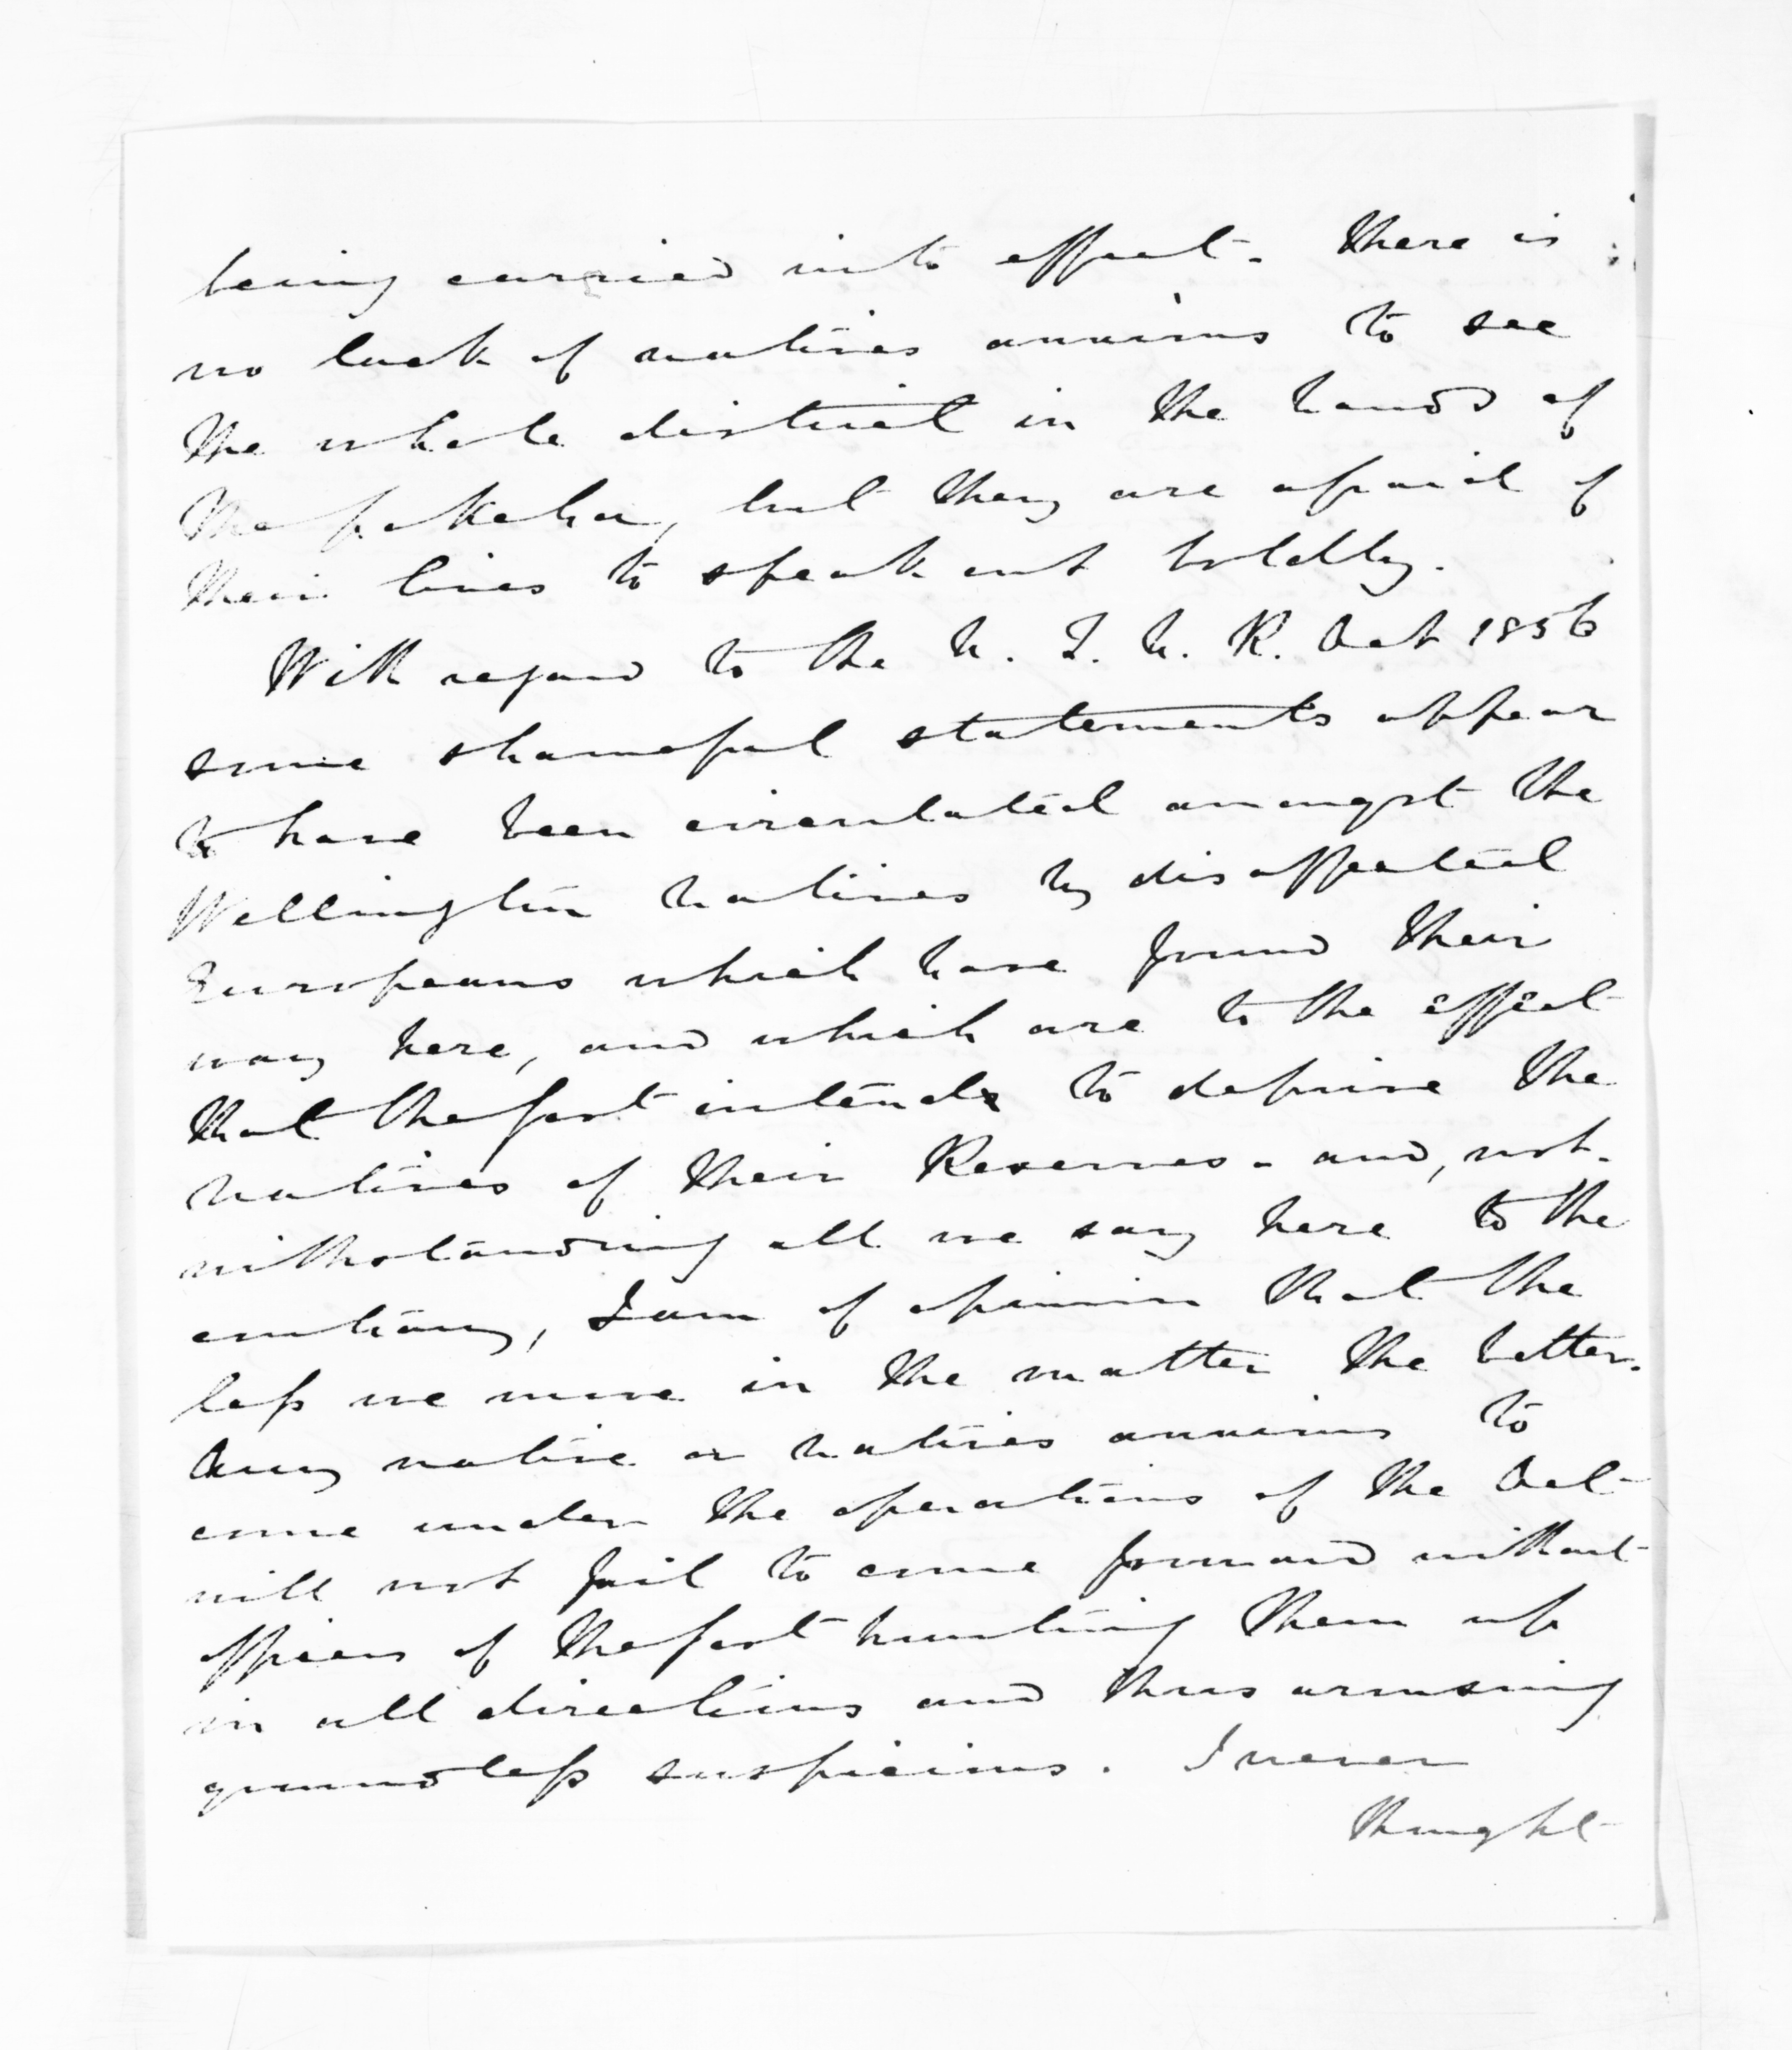 being carried into effect. There is
no lack of natives anxious to see
the whole district in the hands of
the pakeha, but they are afraid of
their lives to speak out boldly.
With regard to the N. Z. N. R. Act 1856
some shameful statements appear
to have been circulated amongst the
Wellington natives by disaffected
Europeans which have found their
way here, and which are to the effect
that the Govt intends to deprive the
natives of their Reserves. and, not-
withstanding all we say here to the
contrary, I am of opinion that the
less we move in the matter the better.
Any native or natives anxious to
come under the operations of the Act
will not fail to come forward without
officers of the Govt hunting them up
in all directions and thus arousing
groundless suspicions. I never
thought